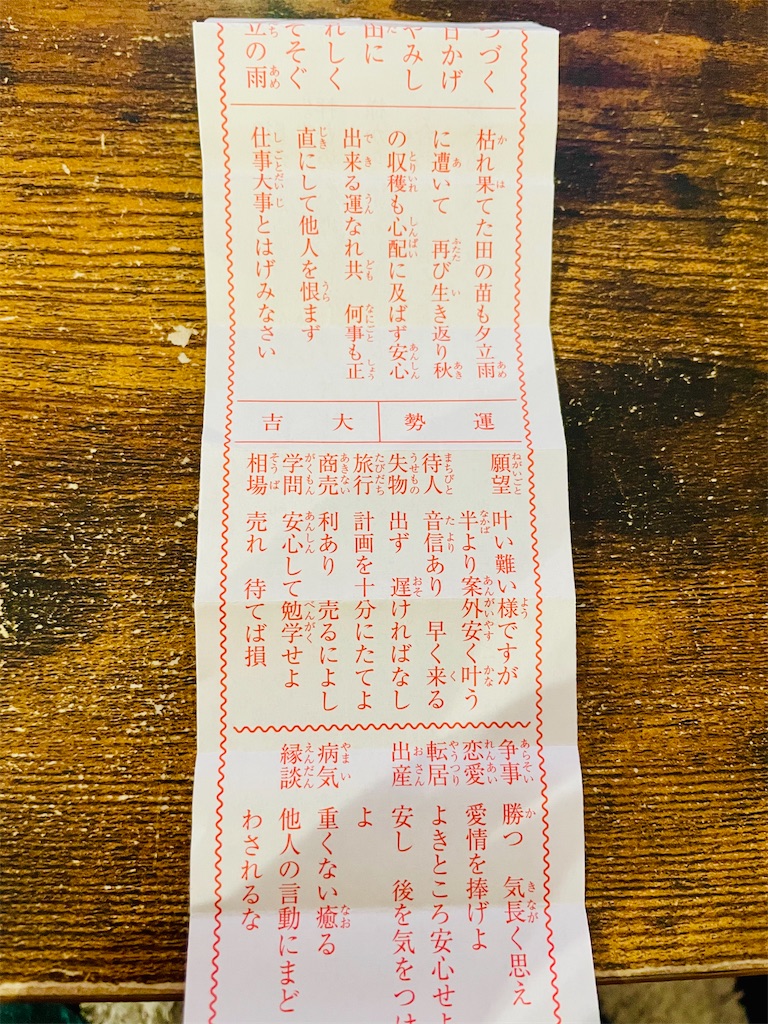 つづく
日かげ
やみし
田に
れしく
そそぐ
立の雨
枯れ果てた田の苗も夕立雨
に遭いて 再び生き返り秋
の収穫も心配に及ばず安心
出来る運なれ共 何事も正
直にして他人を恨まず
仕事大事とはげみなさい
運勢 大吉
願望 叶い難い様ですが
半より案外安く叶う
待人 音信あり 早く来る
失物 出ず 遅ければなし
旅行 計画を十分にたてよ
商売 利あり 売るによし
学問 安心して勉学せよ
相場 売れ 待てば損
争事 勝つ 気長く思え
恋愛 愛情を捧げよ
転居 よきところ安心せよ
出産 安し 後を気をつけ
よ
病気 重くない癒る
縁談 他人の言動にまど
わされるな